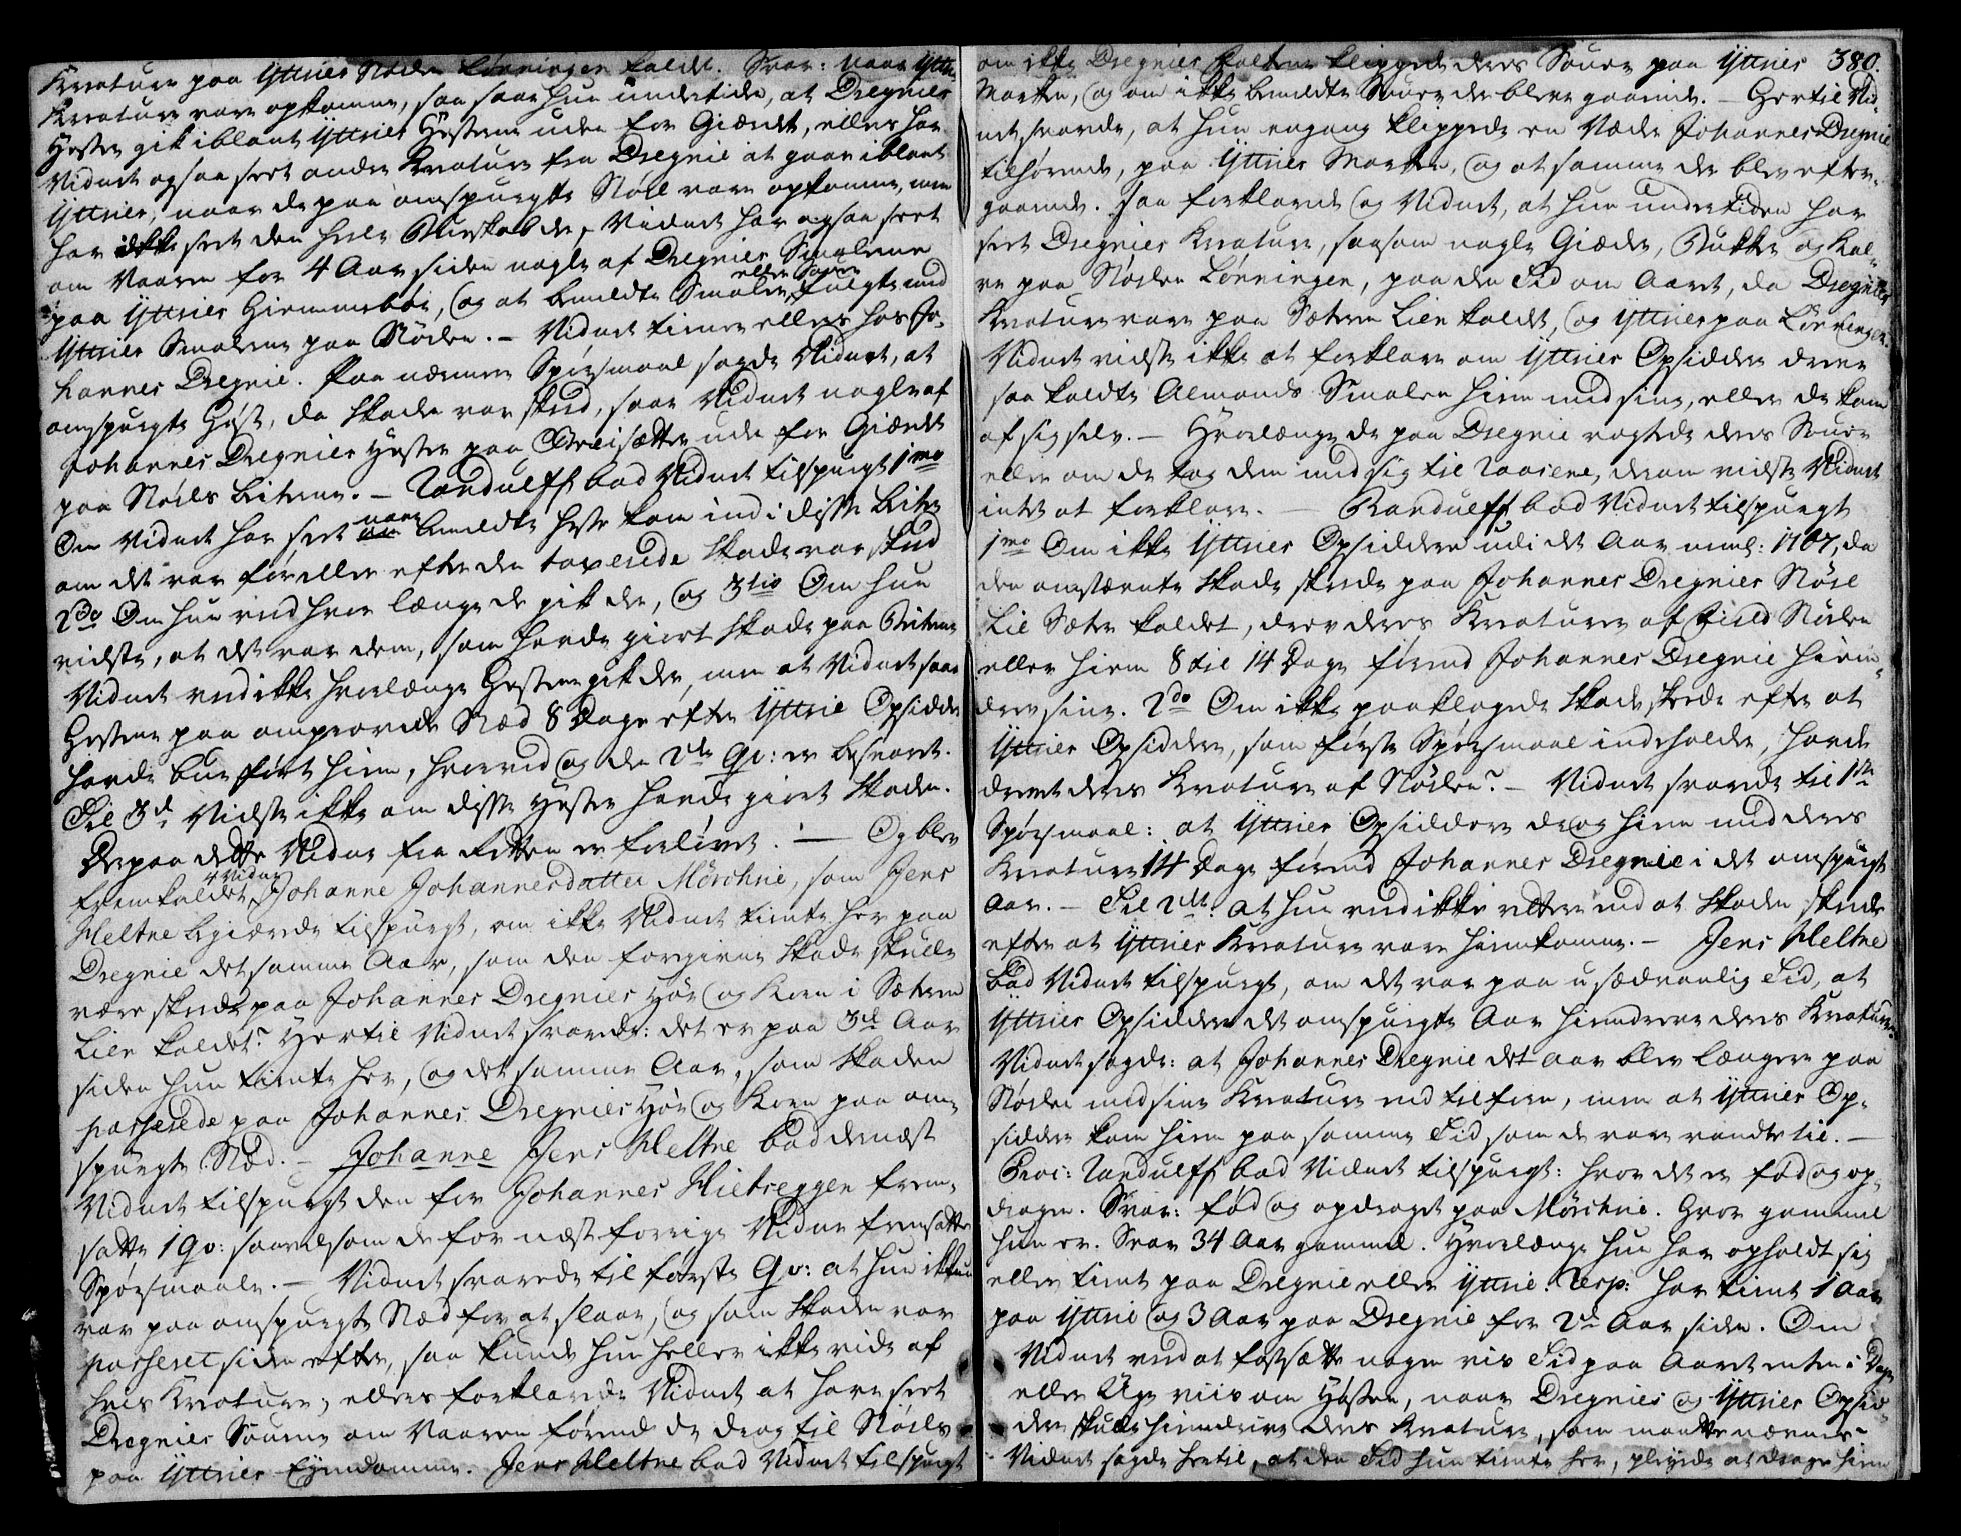 Kreature paa Yttries Stølen Lønningen kaldet. Svar: naar Yttr.
Kreature vare opkomne, saa saae hun undertiden, at Dregnies
Hester gik iblant Yttries Hestene uden for Giærdet, ellers har
Vidnet ogsaa seet andre Kreature fra Dregnie at gaae iblant
Yttries, naar de paa omspurgte Støel vare opkomne, men
har ikke seet den heele Buskab der, Vidnet har ogsaa seet
om Vaaren for 4 Aar siden nogle af Dregnies Smalerne
paa Yttries Hiemmebøe, og at bemeldte Smaler eller Souer fulgte med
Yttries Smalerne paa Stølen. - Vidnet tiener ellers hos Jo-
hannes Dregnie. Paa nærmere Spørsmaal sagde Vidnet, at
omspurgte Høst, da Skaden var skeed, saae Vidnet nogle af
Johannes Dregnies Hester paa Breisætter uden for Giærdet
paa Støels Beitene. - Randulff bad Vidnet tilspurgt 1mo
Om Vidnet har seet naar bemeldte Heste kom ind i disse Beiter
om det var før eller efter den taxerede Skade var skeed
2do Om hun veed hvor længe de gik der, og 3tio Om hun
vidste, at det var dem, som havde giort Skade paa Beitene
Vidnet veed ikke hvorlænge Hestene gik der, men at Vidnet saae
Hestene paa omprovede Stæd 8 Dage efter Yttrie Opsidder
havde bufført hiem, hvorved og den 2de Qv: er besvaret.
Til 3d. Vidste ikke om disse Hester havde giort Skaden.
Derpaa dette Vidne fra Retten er forløvet. - Og blev
fremkaldet 4 Vidne Johanne Johannesdatter Mørchrie, som Jens
Meltne begiærede tilspurgt, om ikke Vidnet tiente her paa
Dregnie det samme Aar, som den foregivne Skade skulle
være skeed paa Johannes Dregnies Høe og Korn i Sætteren
Lien kaldet? Hertil Vidnet svarede: det er paa 3de Aar
siden hun tiente her, og det samme Aar, som Skaden
passerede paa Johannes Dregnies Høe og Korn paa om-
spurgte Stæd. - Johanne Jens Meltne bad dernæst
Vidnet tilspurgt den for Johannes Mietreggen frem-
satte 1 Qv: saavelsom de for næst forrige Vidne fremsatte
Spørsmaale. - Vidnet svarede til første Qv: at hun ikke
var paa omspurgte Stæd for at slaae, og som Skaden var
passeret siden efter, saa kunde hun heller ikke vide af
hvis Kreature, ellers forklarede Vidnet at have seet
Dregnies Souerne om Vaaren førend de drog til Støels
paa Yttries Eyendomme. Jens Meltne bad Vidnet tilspurgt
om ikke Dregnies Folkene klippede deres Souer paa Yttries 380.
Marken, og om ikke bemeldte Souer der bleve gaaende. - Hertil Vid-
net svarede, at hun engang klippede en Væder Johannes Dregnie
tilhørende, paa Yttries Marken, og at samme der blev efter-
gaaende. Saa forklarede og Vidnet, at hun undertiden har
seet Dregnies Kreature, saasom nogle Gieder, Bukker og Kal-
ve paa Stølen Lønningen, paa den Tid om Aaret, da Dregnies
Kreature vare paa Sætteren Lien kaldet, og Yttries paa Lønningen.
Vidnet vidste ikke at forklare om Yttries Opsiddere drev
saa kaldte Almands Smalen hiem med sine, eller de kom
af sig selv. - Hvorlænge de paa Dregnie vogtede deres Souer
eller om de tog dem med sig til Raasene, derom vidste Vidnet
intet at forklare. - Randulff bad Vidnet tilspurgt
1mo Om ikke Yttries Opsiddere udi det Aar neml: 1767, da
den omstævnte Skade skeede paa Johannes Dregnies Støel
Lie Sæter kaldet, drev deres Kreature af Field Stølen
eller hiem 8 til 14 Dage førend Johannes Dregnie hiem-
drev sine. 2do Om ikke paaklagede Skade skeede efter at
Yttries Opsiddere, som første Spørsmaal indeholder, havde
drevet deres Kreature af Stølen? - Vidnet svarede til 1ste
Spørsmaal: at Yttries Opsiddere drog hiem med deres
Kreature 14 Dage førend Johannes Dregnie i det omspurgte
Aar. - Til 2det: at hun veed ikke rettere end at Skaden skeede
efter at Yttries Kreature vare hiemkomne. - Jens Meltne
bad Vidnet tilspurgt, om det var paa usædvanlig Tid, at
Yttries Opsiddere det omspurgte Aar hiemdreve deres Kreature.
Vidnet sagde: at Johannes Dregnie det Aar blev længere paa
Stølen med sine Kreature end tilforn, men at Yttries Op-
siddere kom hiem paa samme Tid som de vare vandte til. -
Proc: Randulff bad Vidnet tilspurgt: hvor det er fød og op-
dragen. Svar: fød og opdraget paa Mørchrie. Hvor gammel
hun er. Svar 34 Aar gammel. Hvorlænge hun har opholdt sig
eller tient paa Dregnie eller Yttrie. Resp: har tient 1 Aar
paa Yttrie og 3 Aar paa Dregnie for 2de Aar siden. Om
Vidnet veed at fastsætte nogen vis Tid paa Aaret enten i Dage
eller Uge viis om Høsten, naar Dregnies og Yttries Opsid-
dere skulle hiemdrive deres Kreature, som maatte nævnes.
Vidnet sagde hertil, at den Tid hun tiente her, pleyede at drage hiem